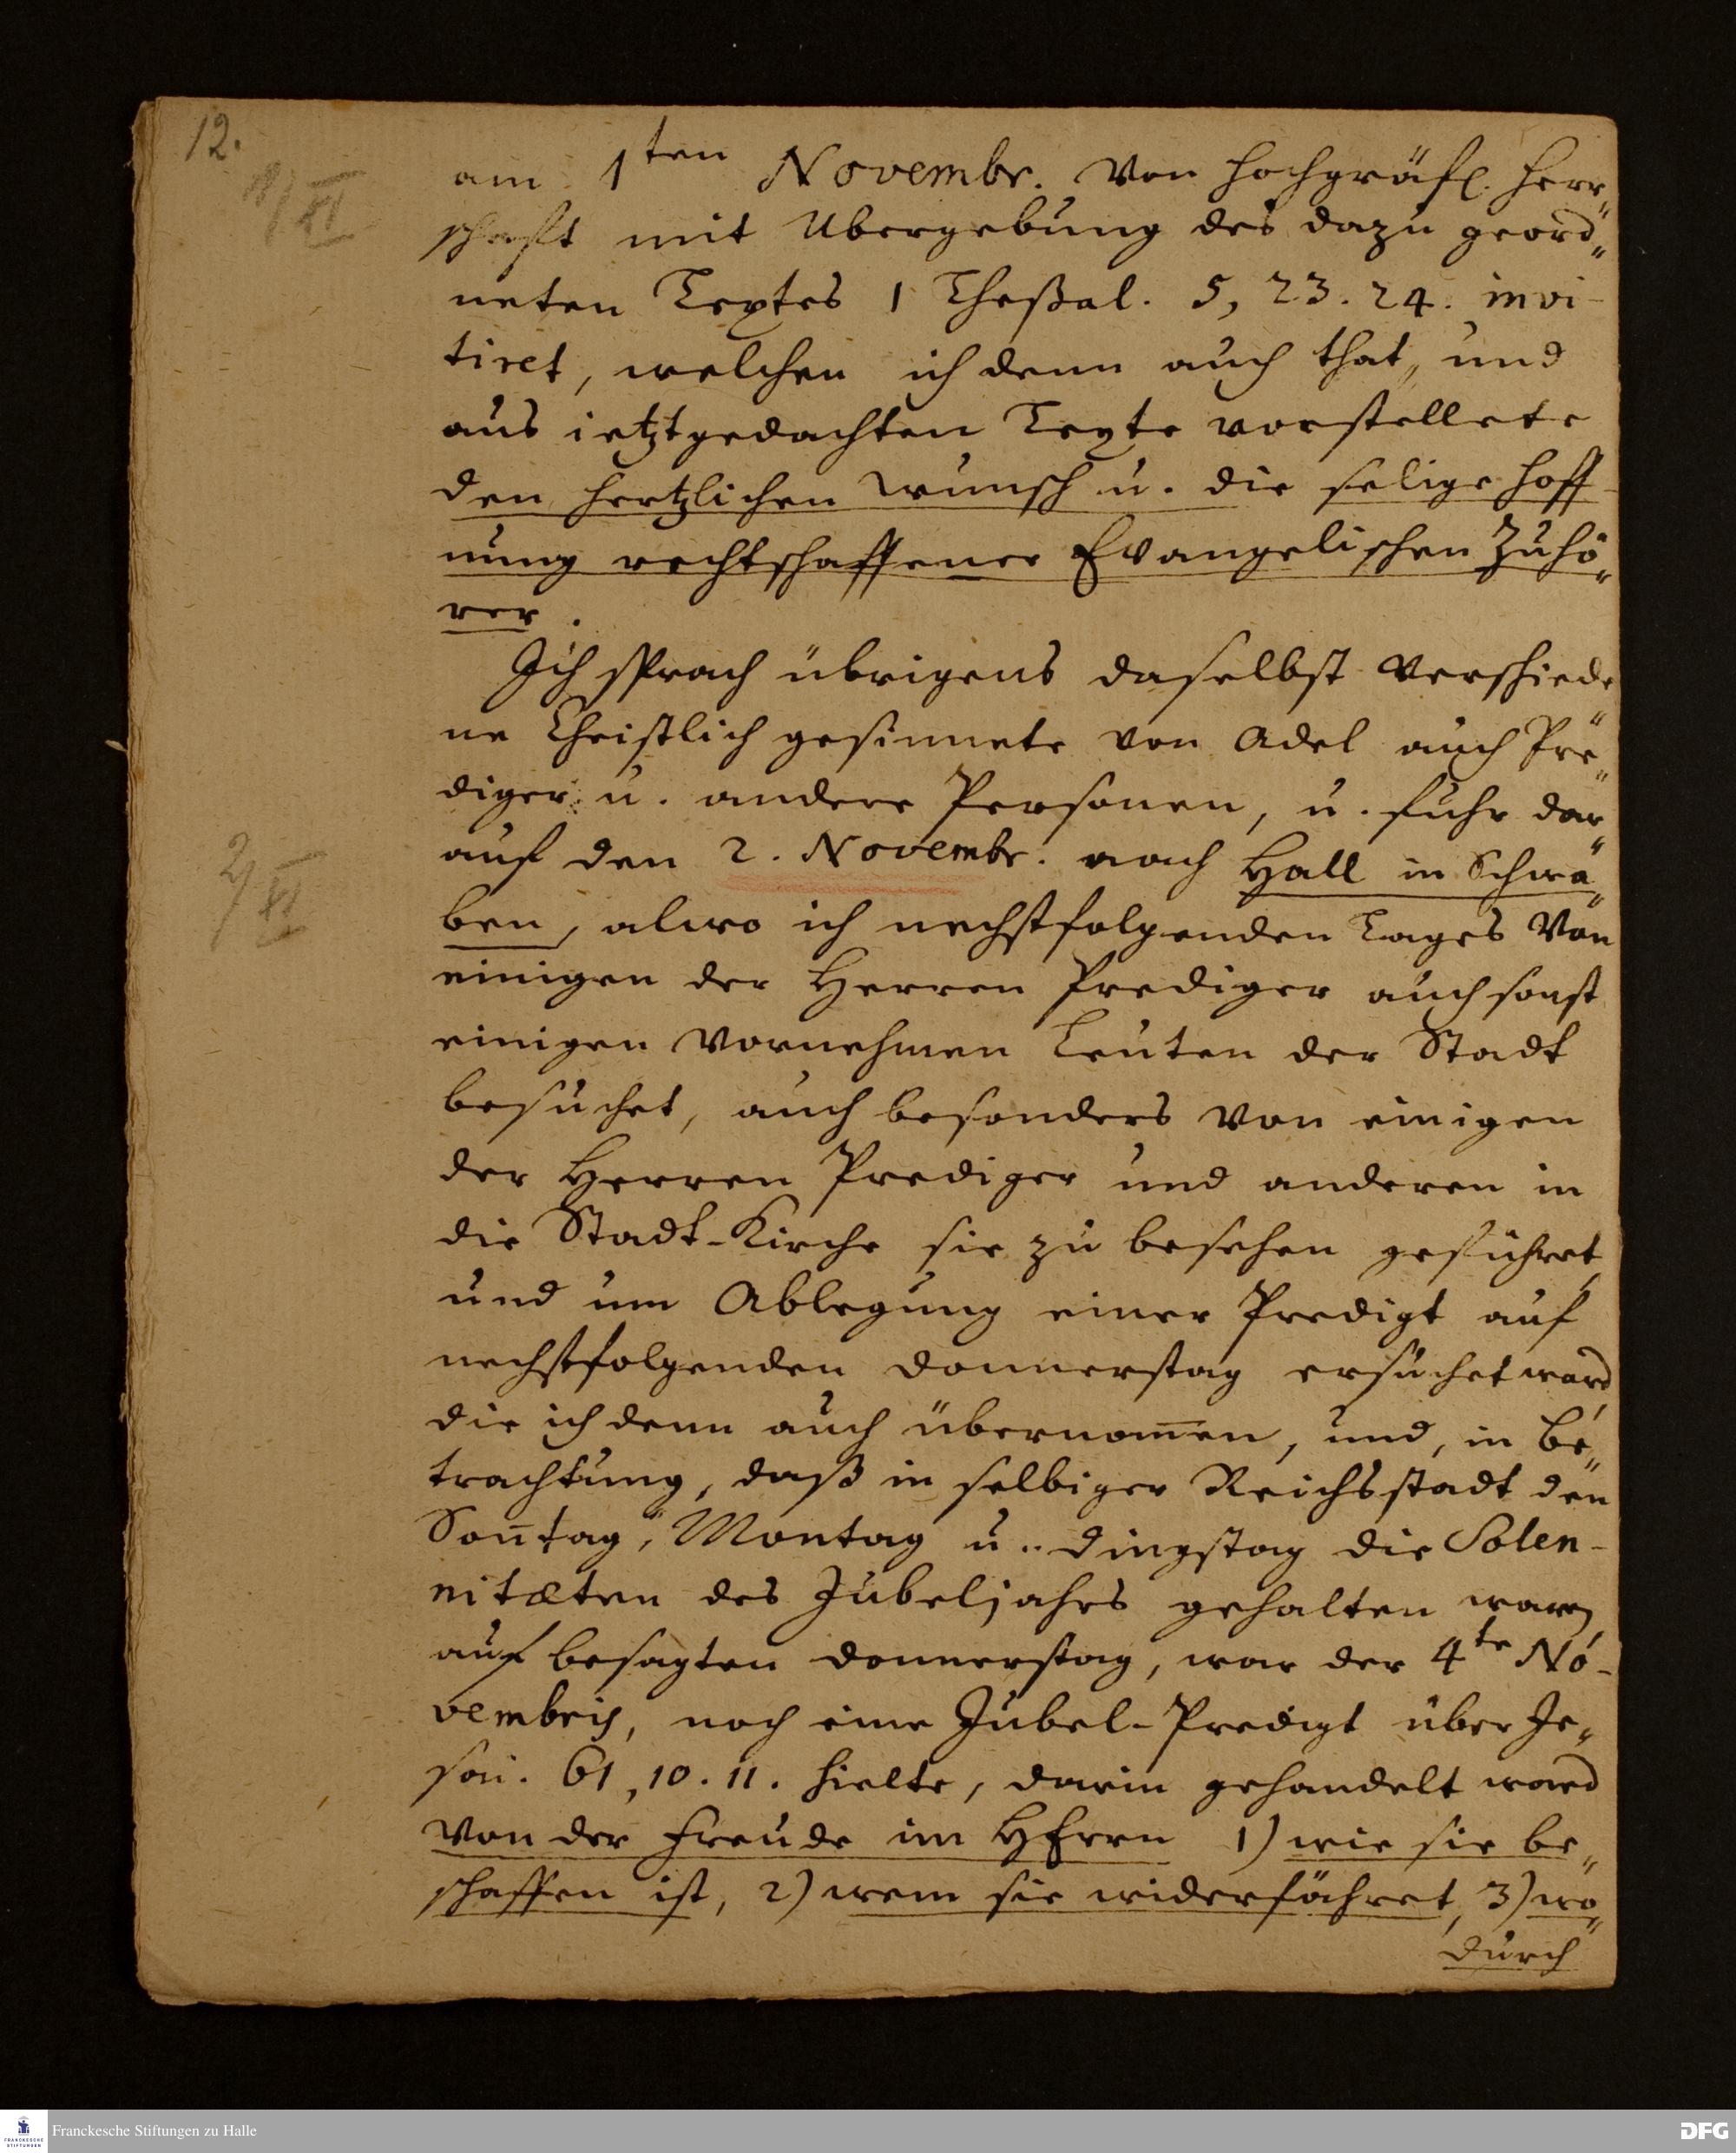 12.
1/XI
am 1ten Novembr. von hochgräfl. Herr„
schafft mit Ubergebung des dazu geord„
neten Textes 1 Theßal. 5, 23. 24. invi-
tiret, welchen ich denn auch that, und
aus ietztgedachten Texte vorstellete
den hertzlichen Wunsch u. die selige Hoff-
nung rechtschaffener Evangelischen Zuhö„
rer.
Ich sprach übrigens daselbst verschiede„
ne Christlich gesinnete von Adel auch Pre„
diger u. andere Personen, u. fuhr dar„
2/XI
auf den 2. Novembr. nach Hall in Schwa„
ben, alwo ich nechstfolgenden Tages von
einigen der Herren Prediger auch sonst
einigen vornehmen Leuten der Stadt
besuchet, auch besonders von einigen
der Herren Prediger und anderen in
die Stadt-Kirche sie zu besehen geführet,
und um Ablegung einer Predigt auf
nechstfolgenden Donnerstag ersuchet ward,
die ich denn auch übernom̅en, und, in Be„
trachtung, daß in selbiger Reichsstadt den
Son̅tag, Montag u. Dingstag die Solen-
nitæten des Jubeljahrs gehalten waren,
auf besagten Donnerstag, war der 4te No-
vembris, noch eine Jubel-Predigt über Je„
sai. 61, 10. 11. hielte, darin gehandelt ward
von der Freude im HErrn 1) wie sie be„
schaffen ist, 2) wem sie widerfähret, 3) wo„
durch
Franckesche Stiftungen zu Halle
FRANCKESCHE
STIFTUNGEN
DFG